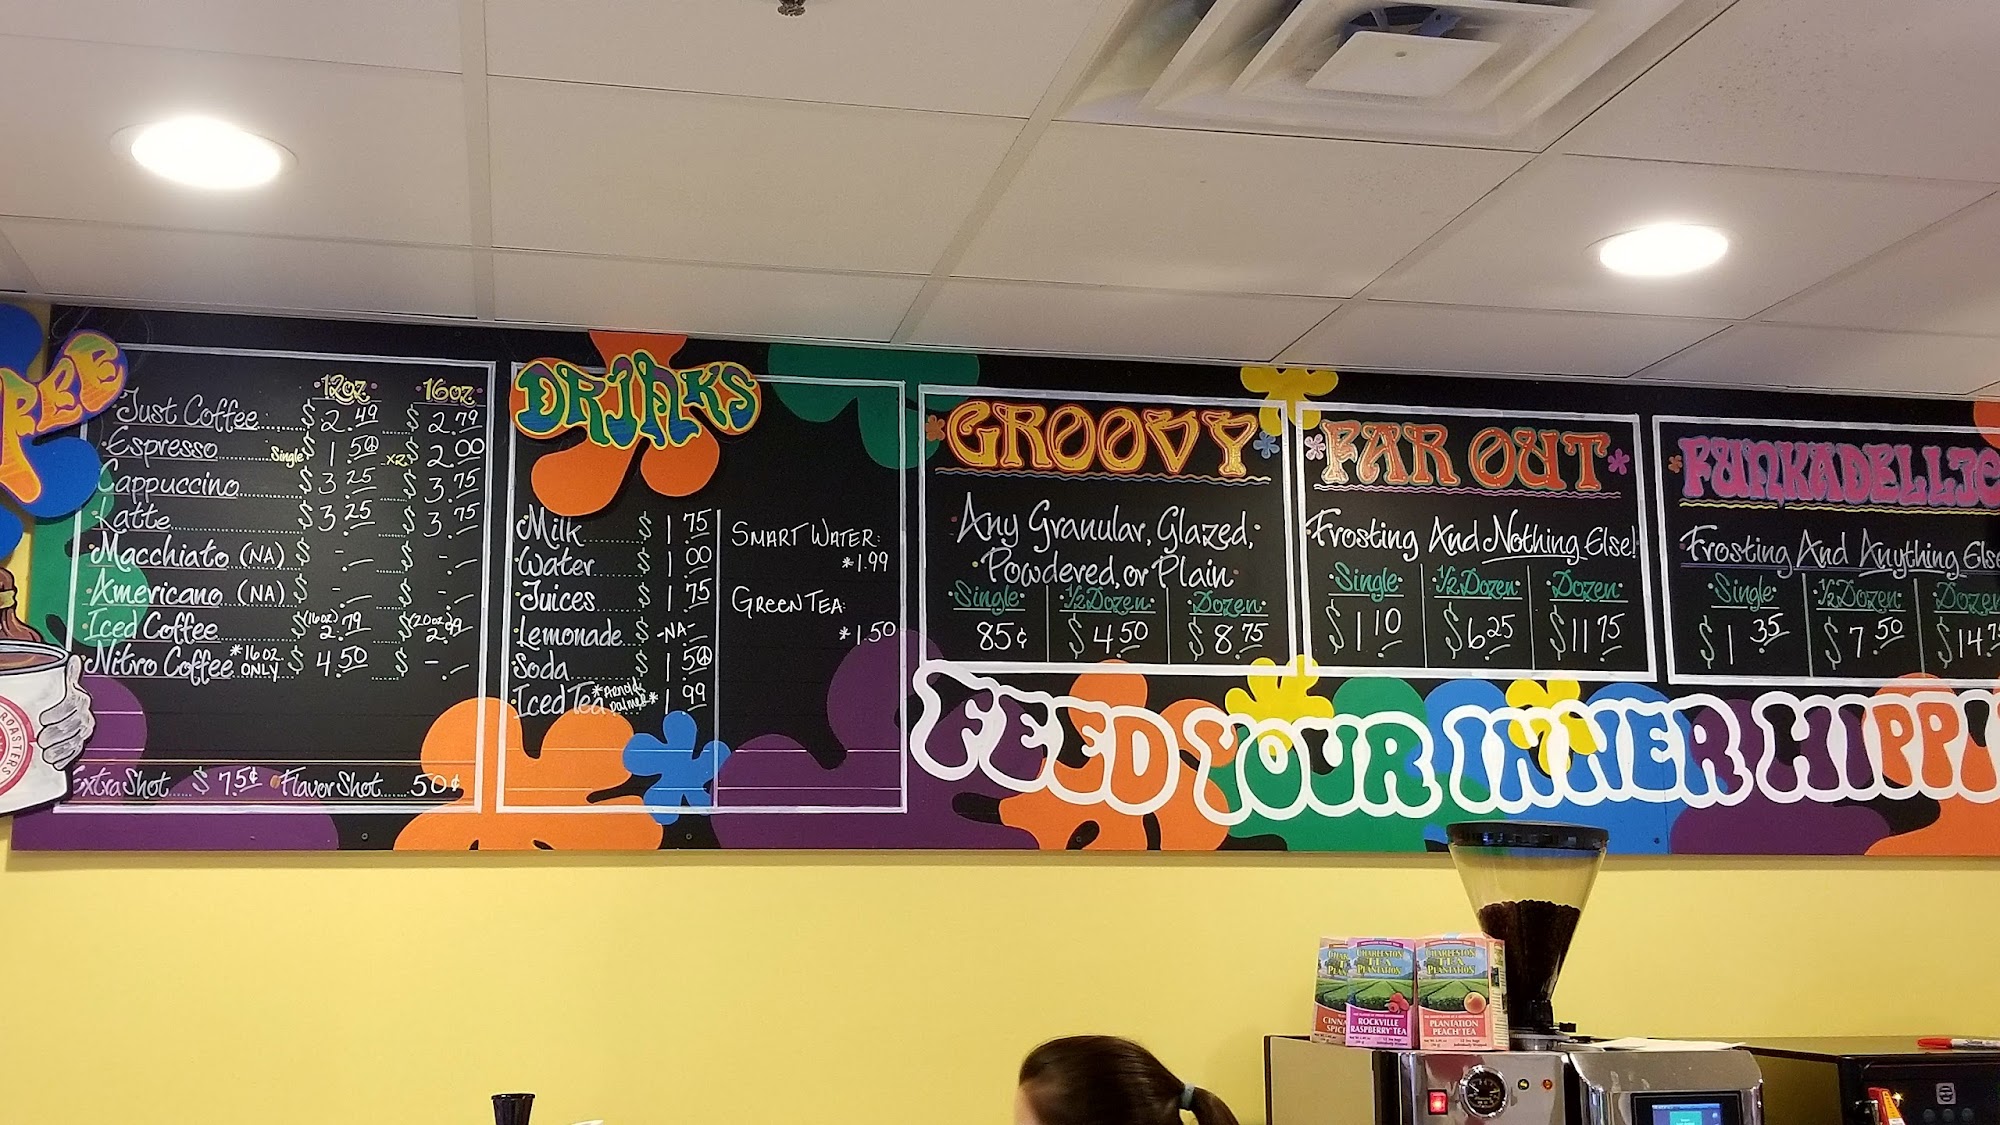 FEE
12oz. 16oz.
Just Coffee $ 2.49 $ 2.79
Espresso Single $ 1.50 x2 $ 2.00
Cappuccino $ 3.25 $ 3.75
Latte $ 3.25 $ 3.75
Macchiato (NA) $ - $ -
Americano (NA) $ - $ -
Iced Coffee $ (16oz) 2.79 $ (20oz)
Nitro Coffee *16oz ONLY $ 4.50 $ -
Extra Shot $ 75¢ Flavor Shot 50¢
ROASTERS
DRINKS
Milk $ 1.75
Water $ 1.00
Juices $ 1.75
Lemonade -NA-
Soda $ 1.50
Iced Tea *Arnold Palmer* $ 1.99
SMART WATER:
*1.99
GREEN TEA:
*1.50
GROOVY
Any Granular, Glazed,
Powdered, or Plain
Single 1/2 Dozen Dozen
85¢ $4.50 $8.75
FAR OUT
Frosting And Nothing Else!
Single 1/2 Dozen Dozen
$1.10 $6.25 $11.75
FUNKADELLIC
Frosting And Anything Else
Single 1/2 Dozen Dozen
$1.35 $7.50 $14.7
FEED YOUR INNER HIPPI
CHARLESTON TEA PLANTATION
ROCKVILLE RASPBERRY TEA
CHARLESTON TEA PLANTATION
PLANTATION PEACH TEA